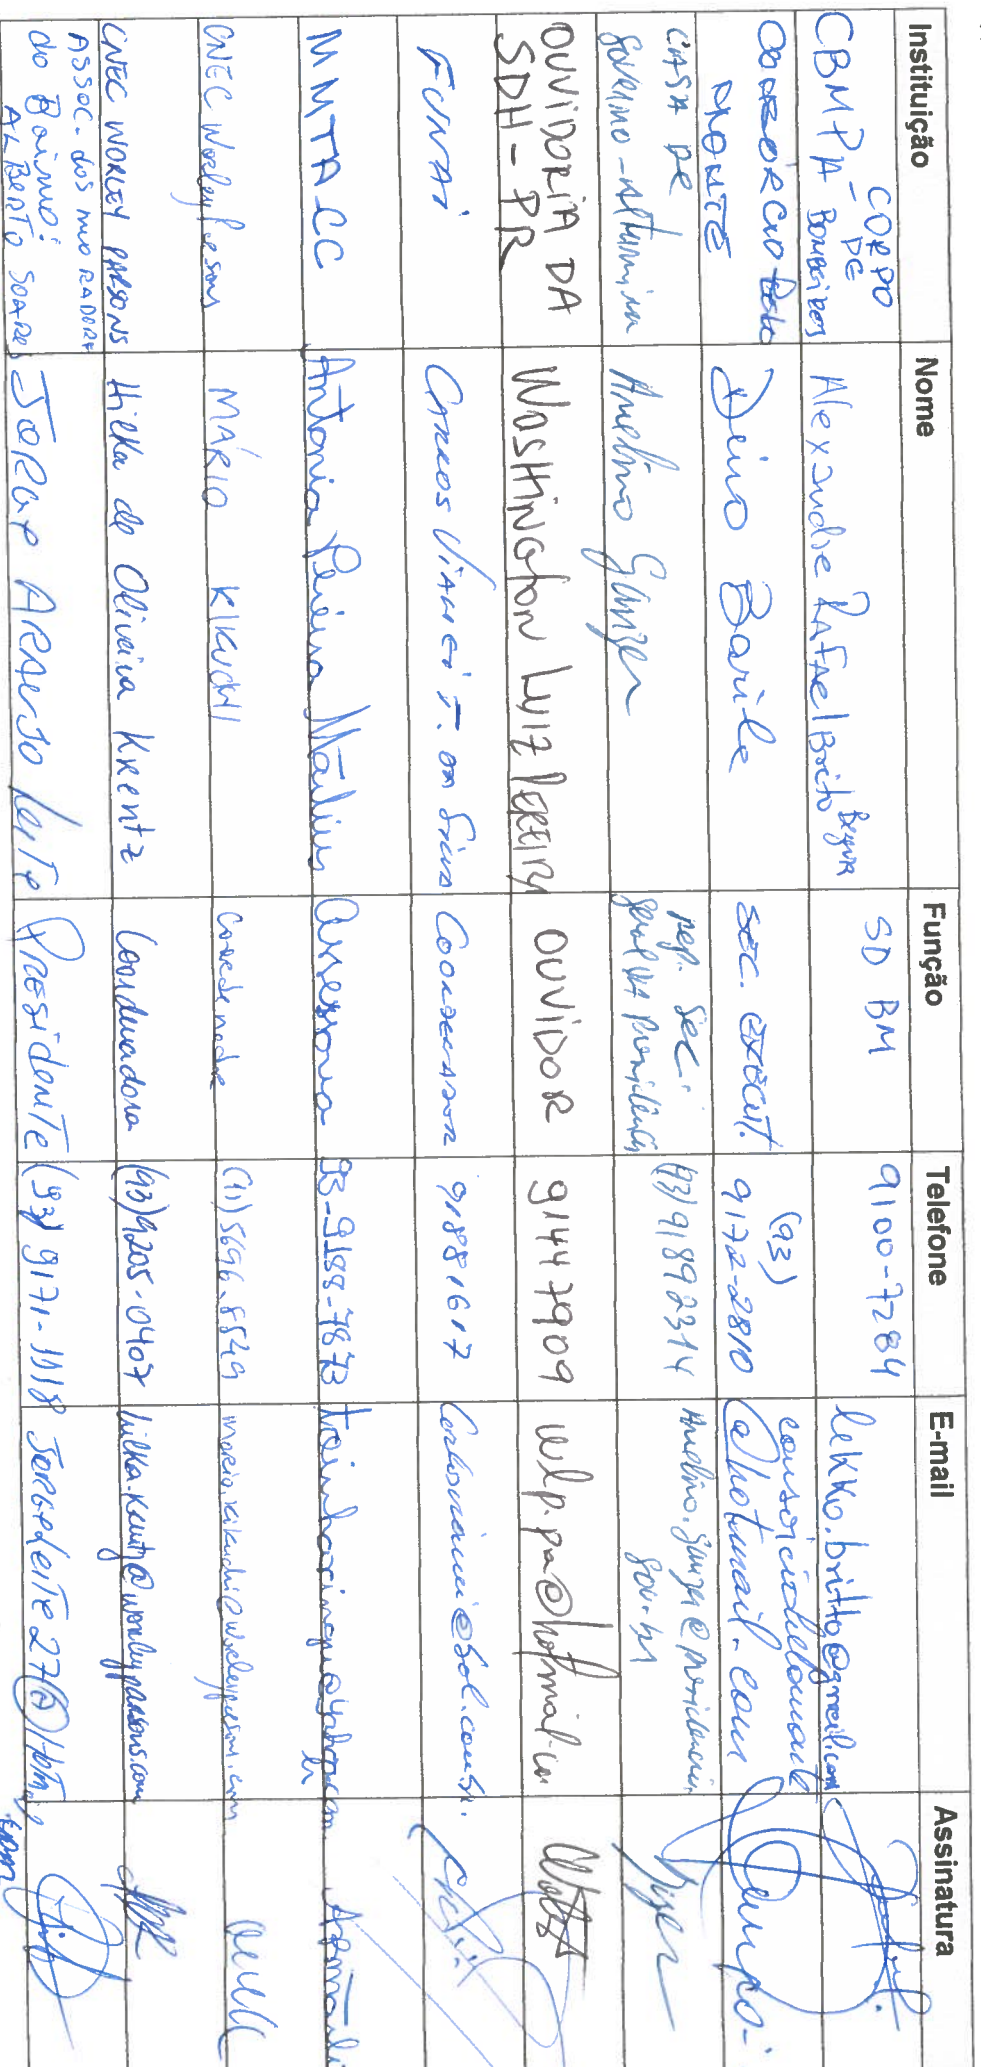 Instituição Nome Função Telefone E-mail Assinatura
CBMPA - CORPO DE BOMBEIROS Alexandre Rafael Brito SD BM 9100-7284 lekko.britto@gmail.com
CONSÓRCIO Belo MONTE Barile SEC. EXECUT. (93) 9172-2810 consorciobelomonte@hotmail.com
CASA DE Governo - Altamira Avelino Ganzer Rep. Sec. Geral da Presidência (93) 91892314 Avelino.ganzer@presidencia.gov.br
OUVIDORIA DA SDH-PR WASHINGTON LUIZ PEREIRA OUVIDOR 91447909 wlp.pa@hotmail.com
FUNAI CARLOS COORDENADOR 91881617
MMTACC Antonia Pereira Martins 93-9188-7873
CNEC WorleyParsons MÁRIO KIKUCHI Coordenador (11) 5696-8549 mario.kikuchi@worleyparsons.com
CNEC WORLEY PARSONS Hilka de Oliveira Krentz Coordenadora (93) 9205-0407 hilka.krentz@worleyparsons.com
ASSOC. dos MORADORES do Bairro: ALBERTO SOARES JORGE ARAUJO Leite PRESIDENTE (93) 9171-1118